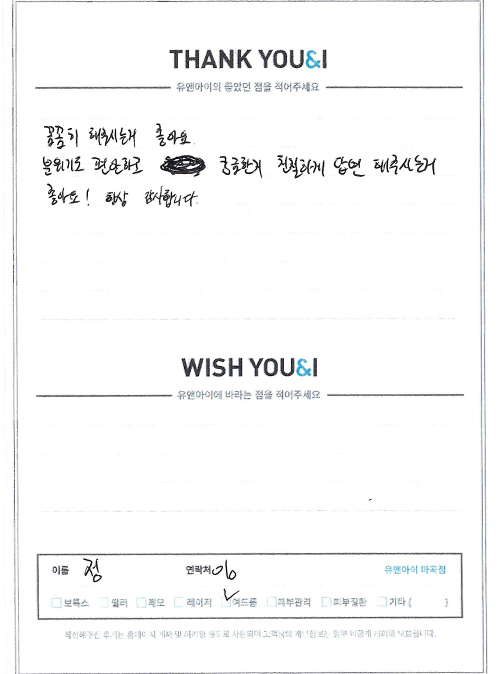 THANK YOU&I
유앤아이의 좋았던 점을 적어주세요
꼼꼼히 해주시는게 좋아요.
분위기도 편안하고 궁금한거 친절하게 답변 해주시는거
좋아요! 항상 감사합니다.
WISH YOU&I
유앤아이에 바라는 점을 적어주세요
이름 정 연락처 유앤아이 마곡점
보톡스 필러 제모 레이저 여드름 피부관리 피부질환 기타 ( )